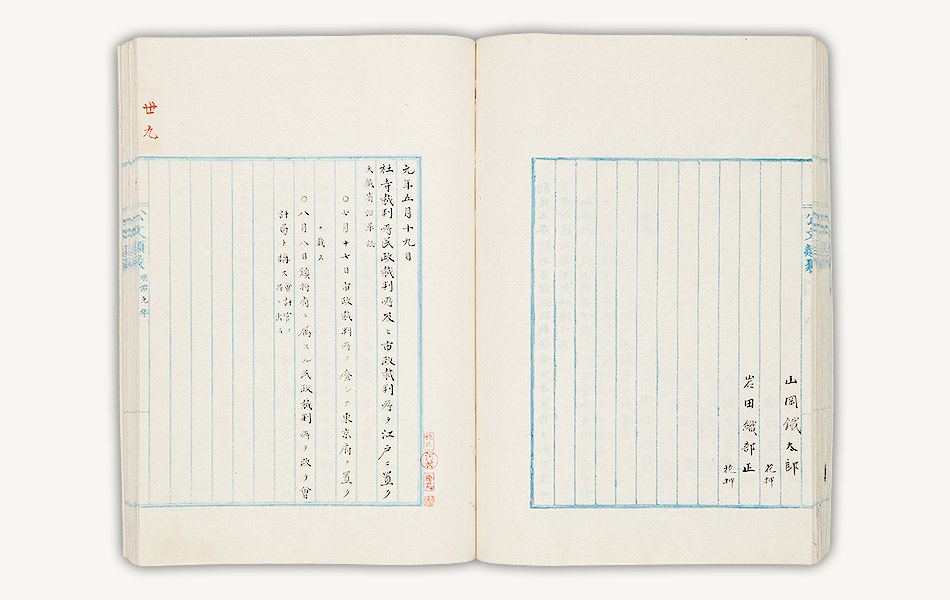 山岡鐵太郎
花押
岩田織部正
花押
元年五月十九日
社寺裁判所民政裁判所及ヒ市政裁判所ヲ江戸ニ置ク
太政官沿革志
〇七月十七日市政裁判所ヲ廃シテ東京府ヲ置ク
〇八月八日鎮将府ニ属スル民政裁判所ヲ改テ會
計局ト稱ス
公文類聚
明治元年
丗九